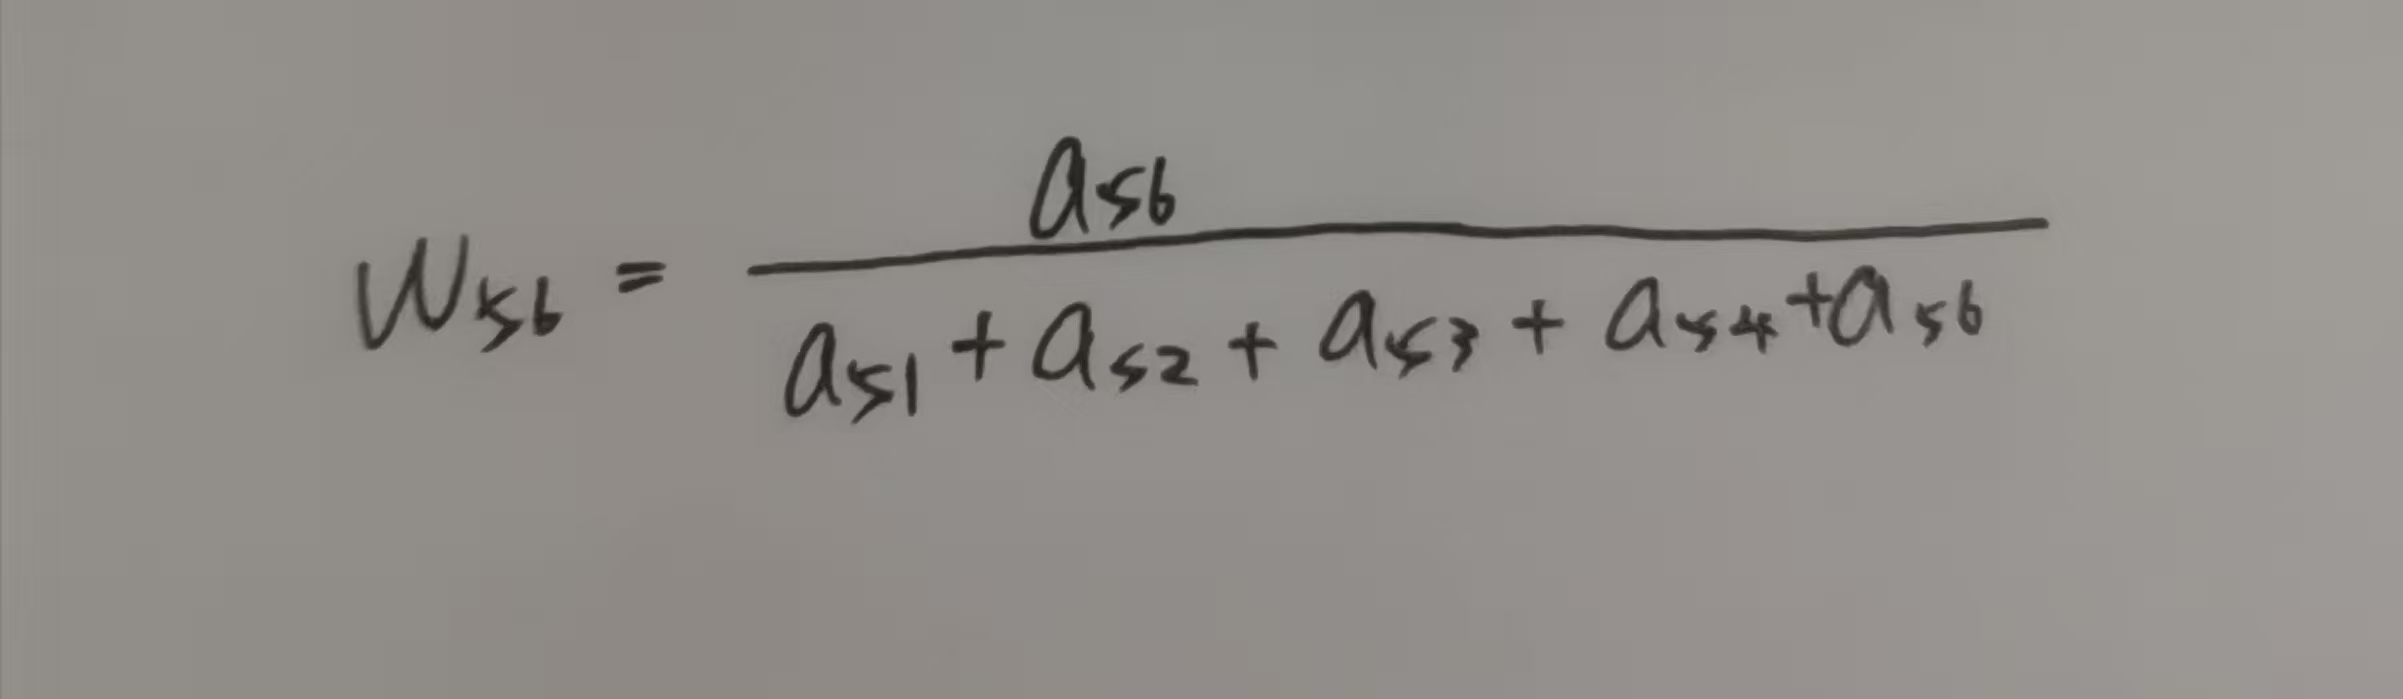 w_{56} = \frac{a_{56}}{a_{51} + a_{52} + a_{53} + a_{54} + a_{56}}